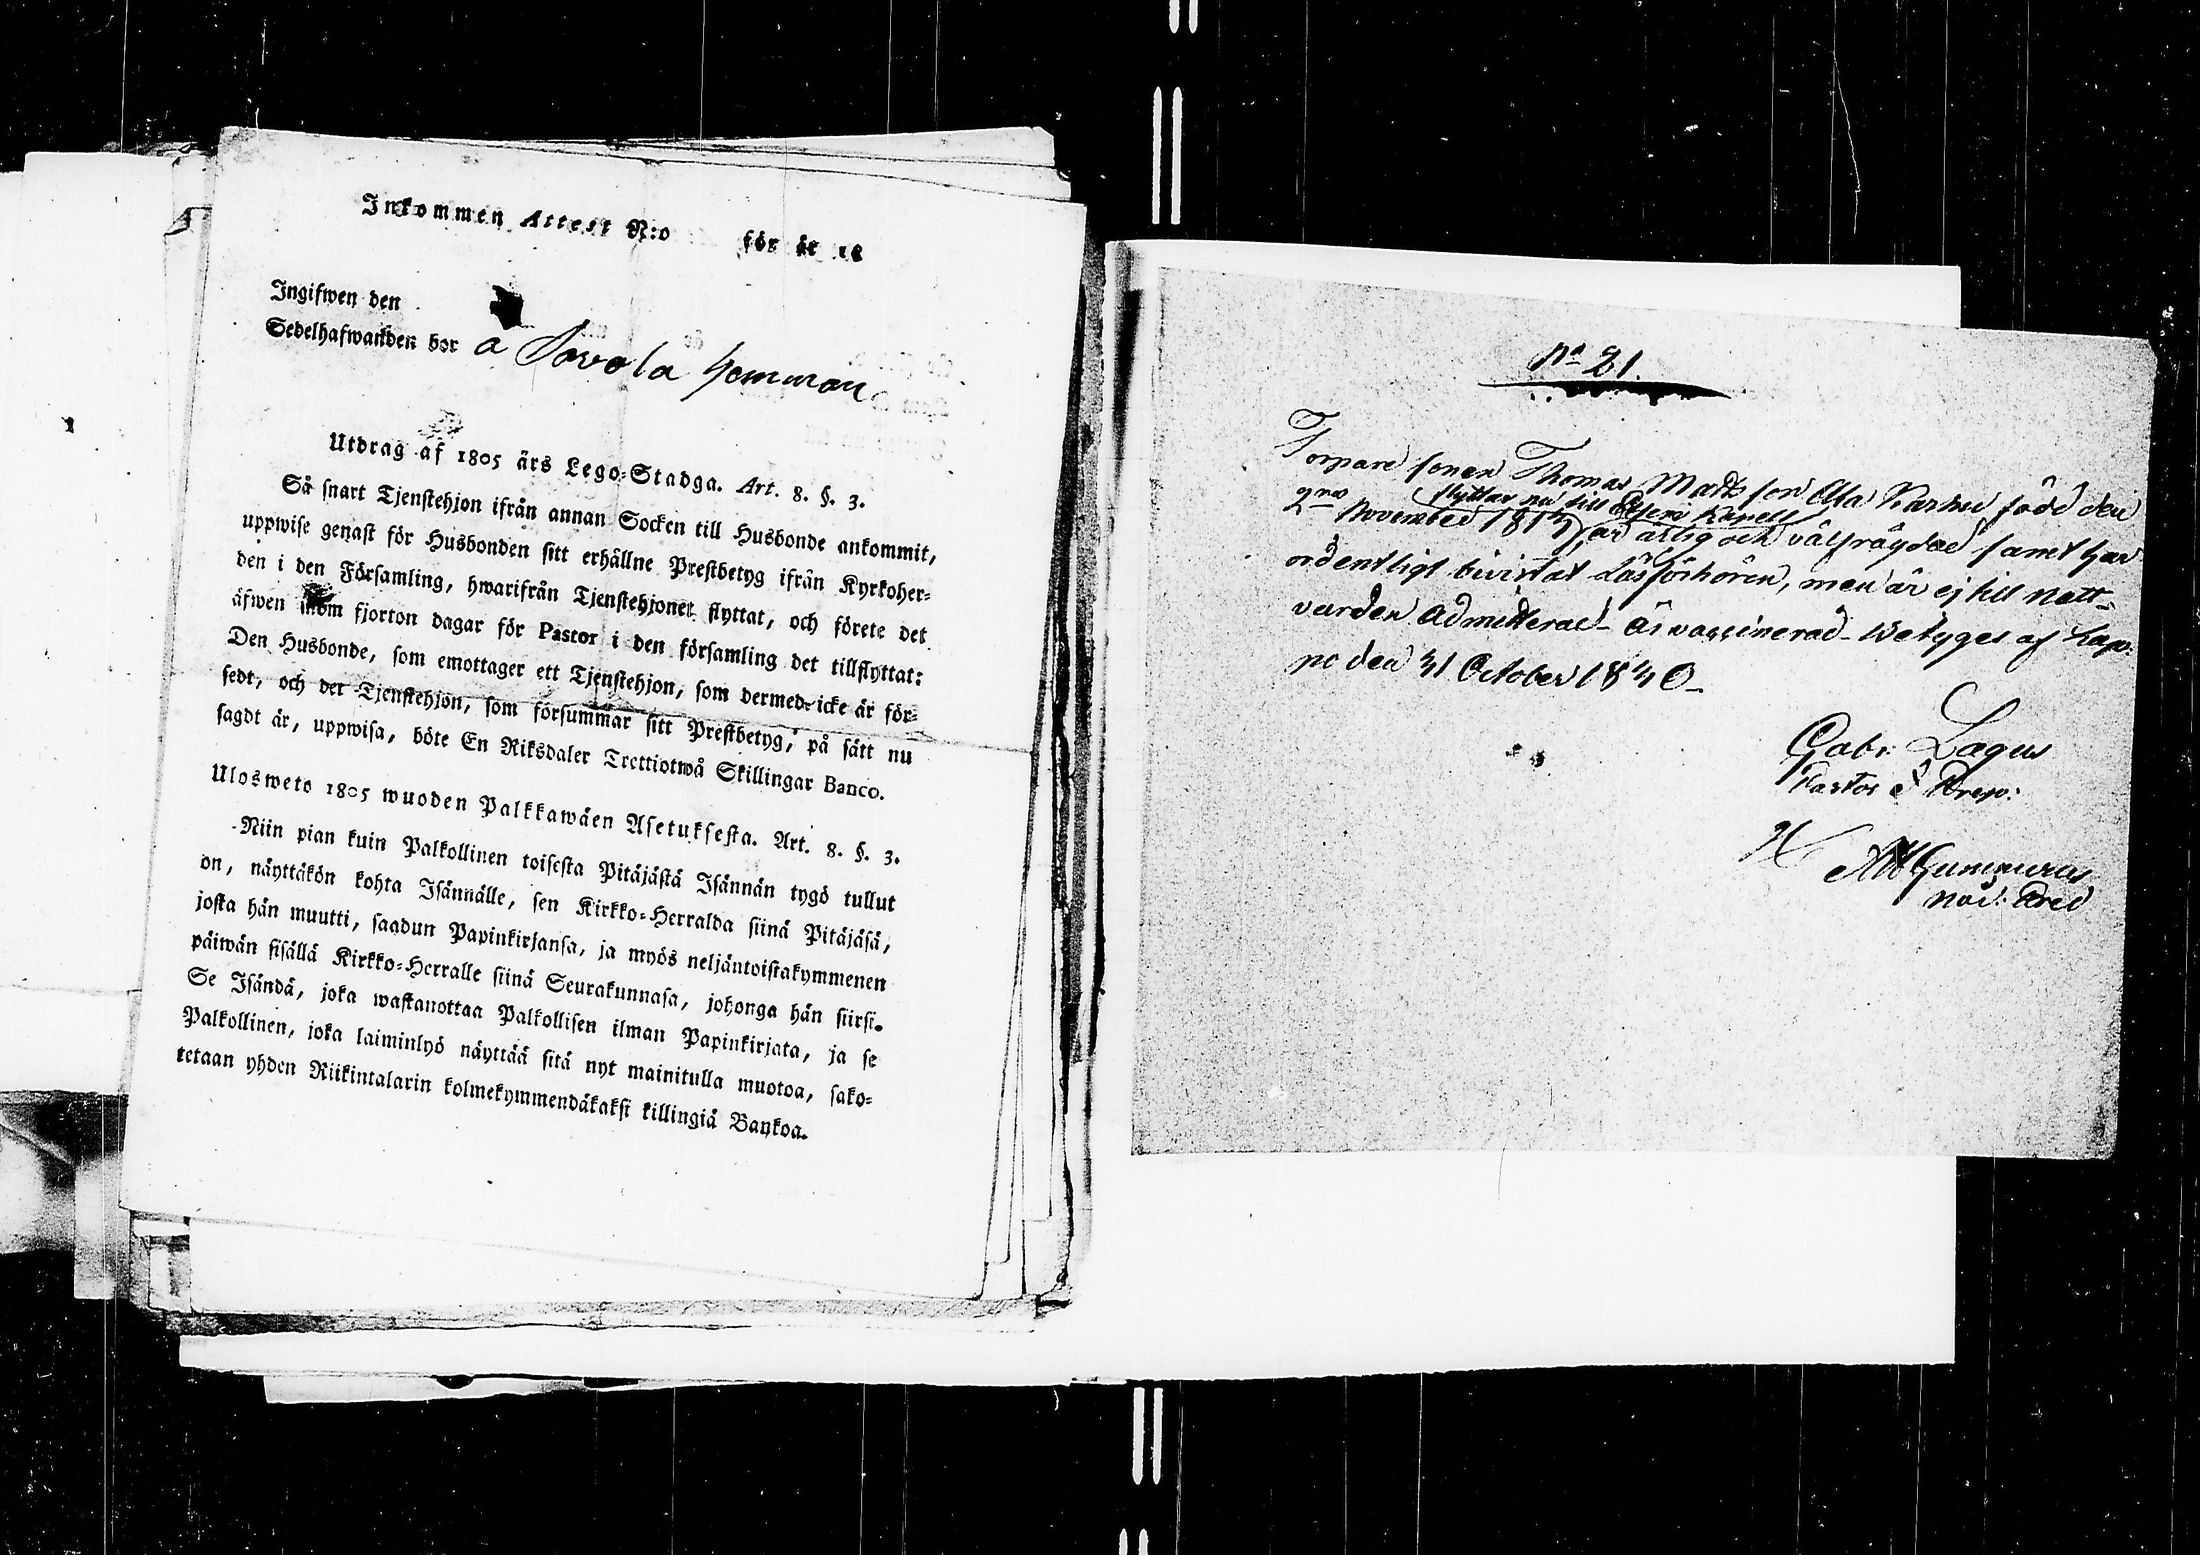 Inkommen Attest N:o för år 18
Ingifwen den
Sedelhafwanden bor a Savola hemman
Utdrag af 1805 års Lego-Stadga. Art. 8. §. 3.
Så snart Tjenstehjon ifrån annan Socken till Husbonde ankommit,
uppwise genast för Husbonden sitt erhållne Prestbetyg ifrån Kyrkoher-
den i den Församling, hwarifrån Tjenstehjonet flyttat, och förete det
äfwen inom fjorton dagar för Pastor i den församling det tillflyttat:
Den Husbonde, som emottager ett Tjenstehjon, som dermed icke är för-
sedt, och det Tjenstehjon, som försummar sitt Prestbetyg, på sätt nu
sagdt är, uppwisa, böte En Riksdaler Trettiotwå Skillingar Banco.
Ulosweto 1805 wuoden Palkkawäen Asetuksesta. Art. 8. §. 3.
Niin pian kuin Palkollinen toisesta Pitäjästä Isännän tygö tullut
on, näyttäkön kohta Isännälle, sen Kirkko-Herralda siinä Pitäjäsä,
josta hän muutti, saadun Papinkirjansa, ja myös neljäntoistakymmenen
päiwän sisällä Kirkko-Herralle siinä Seurakunnasa, johonga hän siirsi.
Se Isändä, joka wastanottaa Palkollisen ilman Papinkirjata, ja se
Palkollinen, joka laiminlyö näyttää sitä nyt mainitulla muotoa, sako-
tetaan yhden Riikintalarin kolmekymmendäkaksi killingiä Bankoa.
No 21.
Torpare sonen Thomas Matts son Ala Karhu född den
flyttar nu till
2 November 1817, är ärlig och välfrägdad samt har
ordentligt bivistat Läsförhören, men är ej till natt-
varden admitterad - är vaccinerad - Betyges af Lap-
po den 31 October 1840 -
Gabr. Lagus
Pastor & Prep:
Gummerus